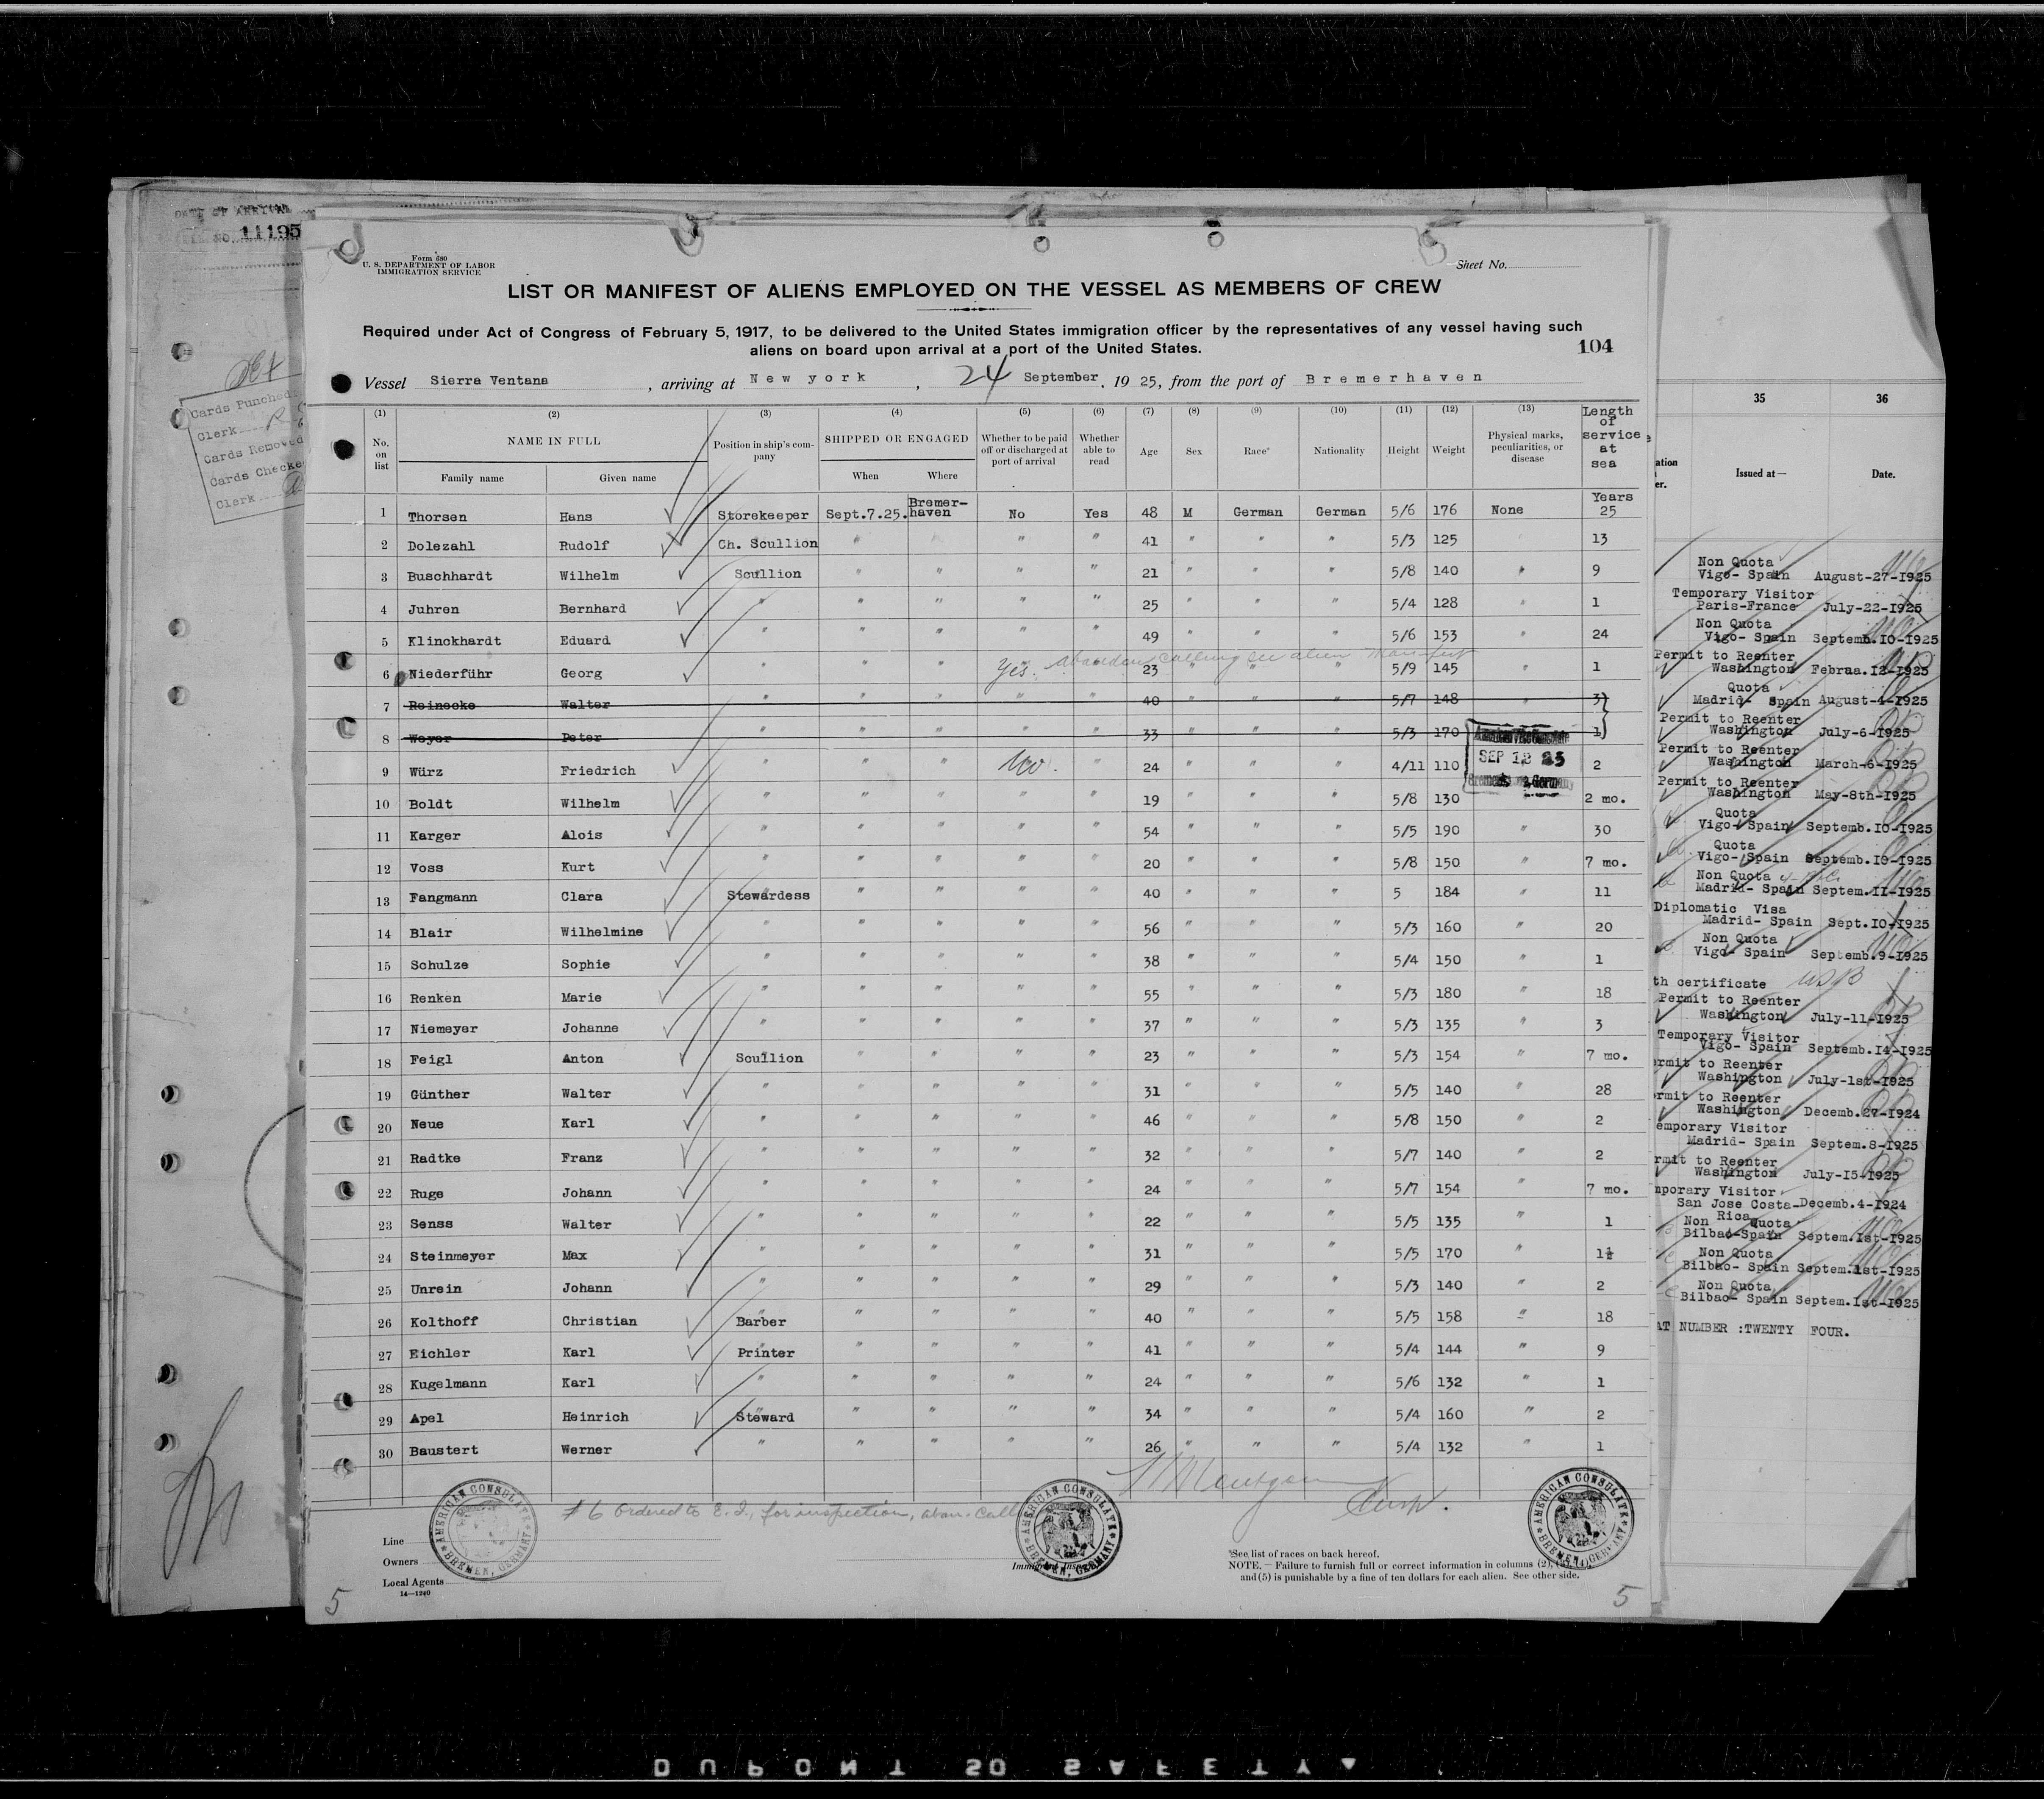 DATE OF ARRIVAL
NO. 11195
Cards Punched
Clerk
Cards Removed
Cards Checke
Clerk
Form 680
U. S. DEPARTMENT OF LABOR
IMMIGRATION SERVICE
Sheet No.
LIST OR MANIFEST OF ALIENS EMPLOYED ON THE VESSEL AS MEMBERS OF CREW
Required under Act of Congress of February 5, 1917, to be delivered to the United States immigration officer by the representatives of any vessel having such
aliens on board upon arrival at a port of the United States.
104
Vessel Sierra Ventana, arriving at New york, 24 September, 1925, from the port of Bremerhaven
(1) (2) (3) (4) (5) (6) (7) (8) (9) (10) (11) (12) (13)
No. on list
NAME IN FULL
Family name Given name
Position in ship's company
SHIPPED OR ENGAGED
When Where
Whether to be paid off or discharged at port of arrival
Whether able to read
Age
Sex
Race*
Nationality
Height
Weight
Physical marks, peculiarities, or disease
Length of service at sea
1 Thorsen Hans Storekeeper Sept.7.25. Bremer-haven No Yes 48 M German German 5/6 176 None Years 25
2 Dolezahl Rudolf Ch. Scullion " " " " 41 " " " 5/3 125 " 13
3 Buschhardt Wilhelm Scullion " " " " 21 " " " 5/8 140 " 9
4 Juhren Bernhard " " " " " 25 " " " 5/4 128 " 1
5 Klinckhardt Eduard " " " " " 49 " " " 5/6 153 " 24
6 Niederführ Georg " " " Yes. abandons calling see alien manifest 23 " " " 5/9 145 " 1
7 Reinecke Walter " " " " " 40 " " " 5/7 148 " 3
8 Weyer Peter " " " " " 33 " " " 5/3 170 1
9 Würz Friedrich " " " No. " 24 " " " 4/11 110 2
SEP 12 25
10 Boldt Wilhelm " " " " " 19 " " " 5/8 130 2 mo.
11 Karger Alois " " " " " 54 " " " 5/5 190 " 30
12 Voss Kurt " " " " " 20 " " " 5/8 150 " 7 mo.
13 Fangmann Clara Stewardess " " " " 40 " " " 5 184 " 11
14 Blair Wilhelmine " " " " " 56 " " " 5/3 160 " 20
15 Schulze Sophie " " " " " 38 " " " 5/4 150 " 1
16 Renken Marie " " " " " 55 " " " 5/3 180 " 18
17 Niemeyer Johanne " " " " " 37 " " " 5/3 135 " 3
18 Feigl Anton Scullion " " " " 23 " " " 5/3 154 " 7 mo.
19 Günther Walter " " " " " 31 " " " 5/5 140 " 28
20 Neue Karl " " " " " 46 " " " 5/8 150 " 2
21 Radtke Franz " " " " " 32 " " " 5/7 140 " 2
22 Ruge Johann " " " " " 24 " " " 5/7 154 " 7 mo.
23 Senss Walter " " " " " 22 " " " 5/5 135 " 1
24 Steinmeyer Max " " " " " 31 " " " 5/5 170 " 1½
25 Unrein Johann " " " " " 29 " " " 5/3 140 " 2
26 Kolthoff Christian Barber " " " " 40 " " " 5/5 158 " 18
27 Eichler Karl Printer " " " " 41 " " " 5/4 144 " 9
28 Kugelmann Karl " " " " " 24 " " " 5/6 132 " 1
29 Apel Heinrich Steward " " " " 34 " " " 5/4 160 " 2
30 Baustert Werner " " " " " 26 " " " 5/4 132 " 1
#6 Ordered to E. I., for inspection, aban. call
AMERICAN CONSULATE BREMEN, GERMANY
AMERICAN CONSULATE BREMEN, GERMANY
AMERICAN CONSULATE BREMEN, GERMANY
Line
Owners
Local Agents
14—1240
Immigrant Inspector
*See list of races on back hereof.
NOTE.—Failure to furnish full or correct information in columns (2),
and (5) is punishable by a fine of ten dollars for each alien. See other side.
5
5
35 36
Issued at— Date.
Non Quota
Vigo- Spain August-27-1925
Temporary Visitor
Paris-France July-22-1925
Non Quota
Vigo- Spain Septemb.10-1925
Permit to Reenter
Washington Februa.12-1925
Quota
Madrid- Spain August-4-1925
Permit to Reenter
Washington July-6-1925
Permit to Reenter
Washington March-6-1925
Permit to Reenter
Washington May-8th-1925
Quota
Vigo- Spain Septemb.10-1925
Quota
Vigo- Spain Septemb.10-1925
Non Quota
Madrid- Spain Septem.11-1925
Diplomatic Visa
Madrid- Spain Sept.10-1925
Non Quota
Vigo- Spain Septemb.9-1925
th certificate USB
Permit to Reenter
Washington July-11-1925
Temporary Visitor
Vigo- Spain Septemb.14-1925
ermit to Reenter
Washington July-1st-1925
rmit to Reenter
Washington Decemb.27-1924
emporary Visitor
Madrid- Spain Septem.8-1925
rmit to Reenter
Washington July-15-1925
mporary Visitor
San Jose Costa-Rica Decemb.4-1924
Non Quota
Bilbao-Spain Septem.1st-1925
Non Quota
Bilbao- Spain Septem.1st-1925
Non Quota
Bilbao- Spain Septem.1st-1925
AT NUMBER :TWENTY FOUR.
DUPONT SO SAFETY